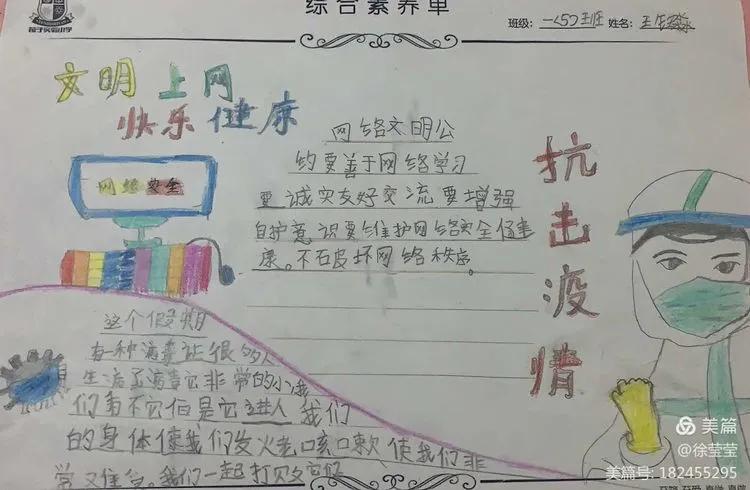 综合素养单
班级：一(5)班 姓名：
文明上网
快乐健康
网络安全
网络文明公
约要善于网络学习
要诚实友好交流要增强
自护意识要维护网络安全健
康。不破坏网络秩序。
抗击疫情
这个假期
有一种病毒让很多人
生活了病毒它非常的小我
们看不它但是它进入我们
的身体使我们发火老咳口欶使我们非
常又难受。我们一起打败它们
美篇
@徐莹莹
美篇号: 182455295